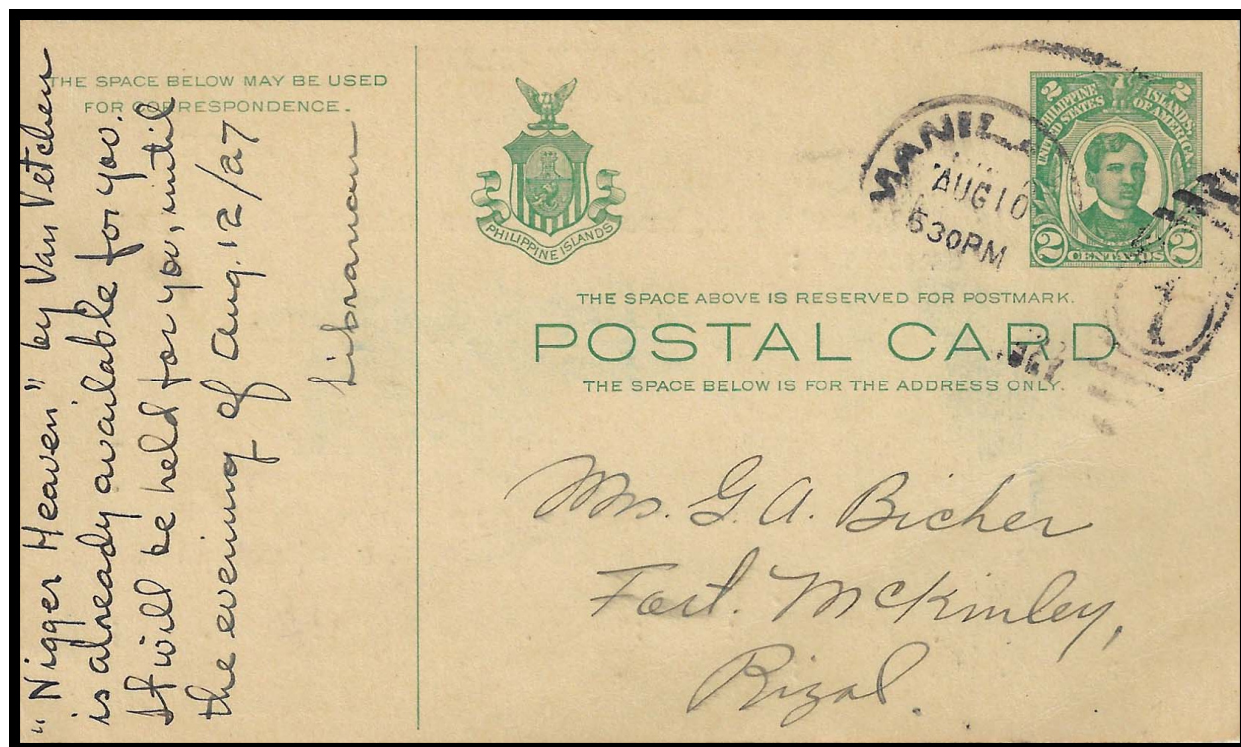 THE SPACE BELOW MAY BE USED
FOR CORRESPONDENCE.
"Nigger Heaven" by Van Vetchen
is already available for you.
It will be held for you, until
the evening of Aug. 12/27
Librarian
PHILIPPINE ISLANDS
MANILA
AUG 10
530PM
2 2
PHILIPPINE ISLANDS
UNITED STATES OF AMERICA
2 CENTAVOS 2
1
THE SPACE ABOVE IS RESERVED FOR POSTMARK.
POSTAL CARD
THE SPACE BELOW IS FOR THE ADDRESS ONLY.
Mrs. G. A. Bicher
Fort. McKinley,
Rizal.